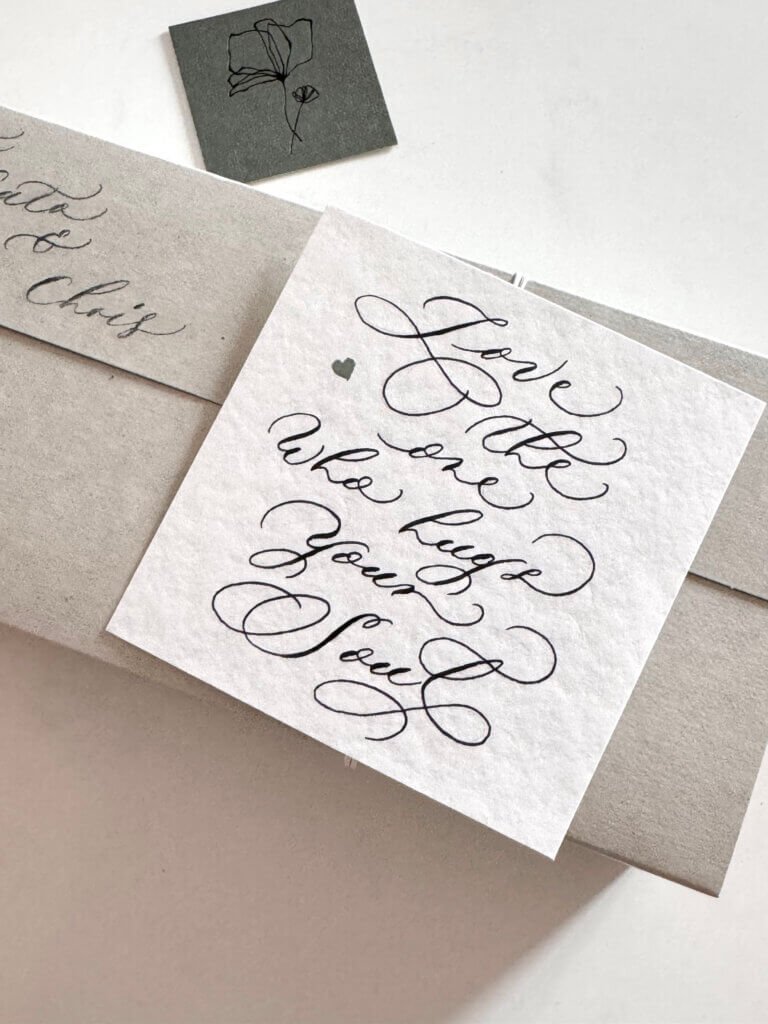 &
Chris
Love
the
one
Who hugs
Your
Soul